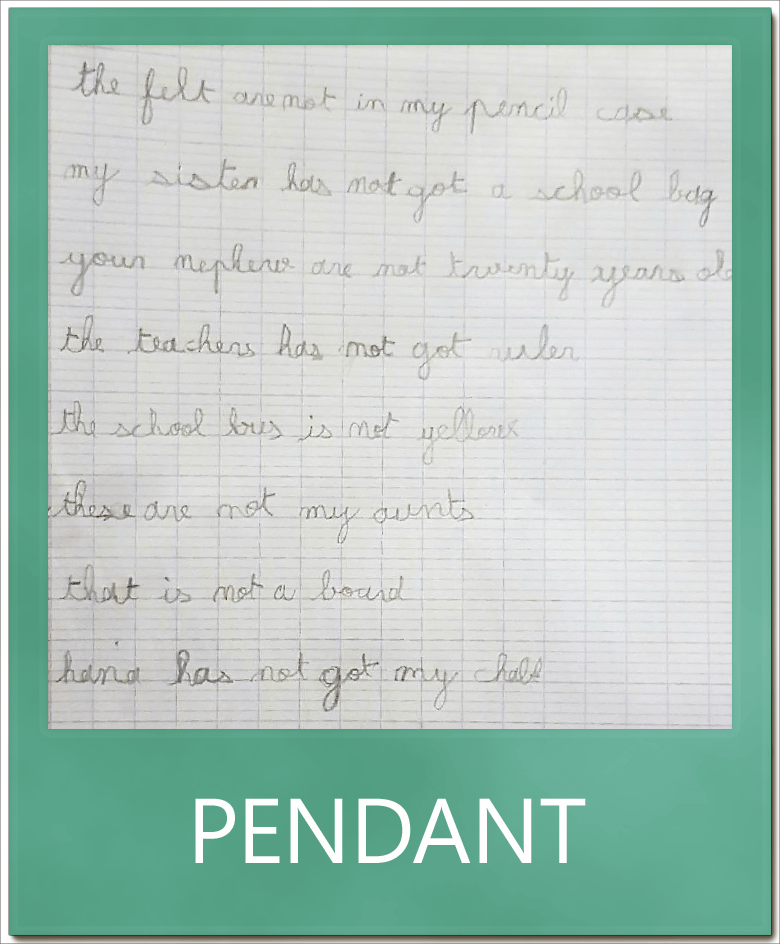 the felt are not in my pencil case
my sister has not got a school bag
your nephew are not twenty years old
the teachers has not got ruler
the school bus is not yellow
these are not my aunts
that is not a board
hania has not got my chalk
PENDANT